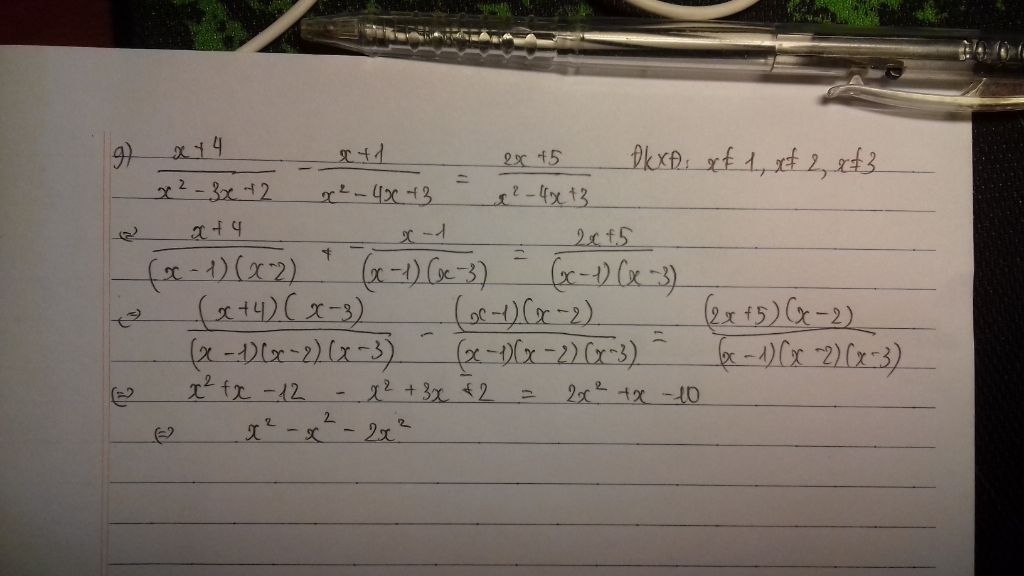 g) (x+4)/(x² - 3x + 2) - (x+1)/(x² - 4x + 3) = (2x+5)/(x² - 4x + 3) ĐKXĐ: x≠1, x≠2, x≠3
⇔ (x+4)/((x-1)(x-2)) + - (x-1)/((x-1)(x-3)) = (2x+5)/((x-1)(x-3))
⇔ ((x+4)(x-3))/((x-1)(x-2)(x-3)) - ((x-1)(x-2))/((x-1)(x-2)(x-3)) = ((2x+5)(x-2))/((x-1)(x-2)(x-3))
⇔ x² + x - 12 - x² + 3x - 2 = 2x² + x - 10
⇔ x² - x² - 2x²